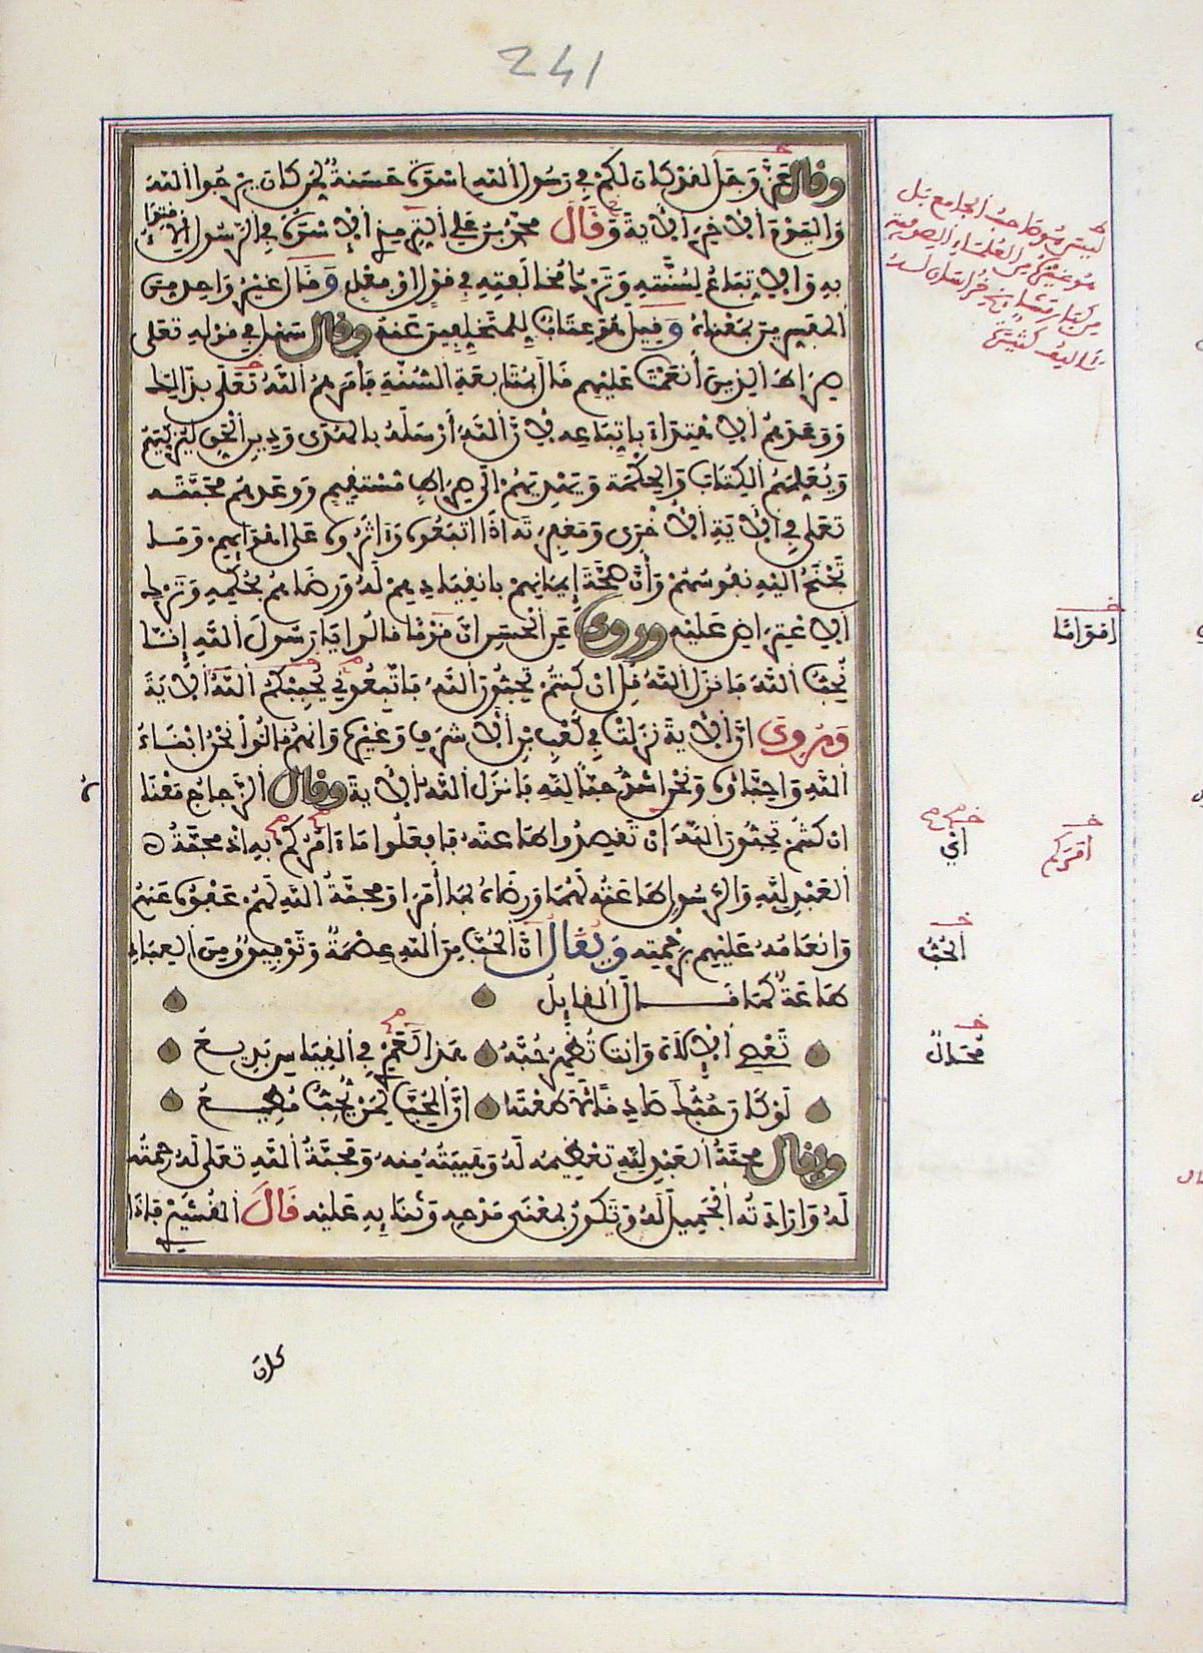 241
وقال عز وجل لقد كان لكم في رسول الله اسوة حسنة لمن كان يرجوا الله
واليوم الاخر الاية وقال محمد بن علي الترمذي الاسوة في الرسول الاقتداء
به والاتباع لسنته وترك مخالفته في قول او فعل وقال غير واحد من
المفسرين بمعناه وقيل هو عتاب للمتخلفين عنه وقال سهل في قوله تعلى
صراط الذين أنعمت عليهم قال بمتابعة السنة فامرهم الله تعلى بذالك
ووعدهم الاهتداء باتباعه لأن الله أرسله بالهدى ودين الحق ليزكيهم
ويعلمهم الكتاب والحكمة ويهديهم الى صراط مستقيم ووعدهم محبته
تعلى في الاية الأخرى ومغفرته اذا اتبعوه وءاثروه على اهوايهم وما
تجنح اليه نفوسهم وأن صحة إيمانهم بانقيادهم له ورضاهم بحكمه وترك
الاعتراض عليه وروي عن الحسن ان قوما قالوا يا رسول الله إنا
نحب الله فانزل الله قل ان كنتم تحبون الله فاتبعوني يحببكم الله الاية
وروي ان الاية نزلت في كعب بن الاشرف وغيره وانهم قالوا نحن ابناء
الله واحباؤه ونحن اشد حبا لله فانزل الله الاية وقال الزجاج معناه
ان كنتم تحبون الله ان تقصدوا طاعته فافعلوا ما ءامركم به اذ محبة
العبد لله والرسول طاعته لهما ورضاه بما أمرا ومحبة الله لهم عفوه عنهم
وانعامه عليهم برحمته ويقال ان الحب من الله عصمة وتوفيق ومن العباد
طاعة كما قال القايل
تعصي الاله وانت تظهر حبه هذا لعمري في القياس بديع
لو كان حبك صادقا لاطعته ان المحب لمن يحب مطيع
ويقال محبة العبد لله تعظيمه له وهيبته منه ومحبة الله تعلى له رحمته
له وارادته الجميل له وتكون بمعنى مدحه وثنايه عليه قال القشيري فاذا
ليس هو صاحب الجامع بل
هو غيره من العلماء الصوفية
من كبار مشايخ خراسان له
تواليف كثيرة
اقواما
أي
أمركم
الحب
محال
كان